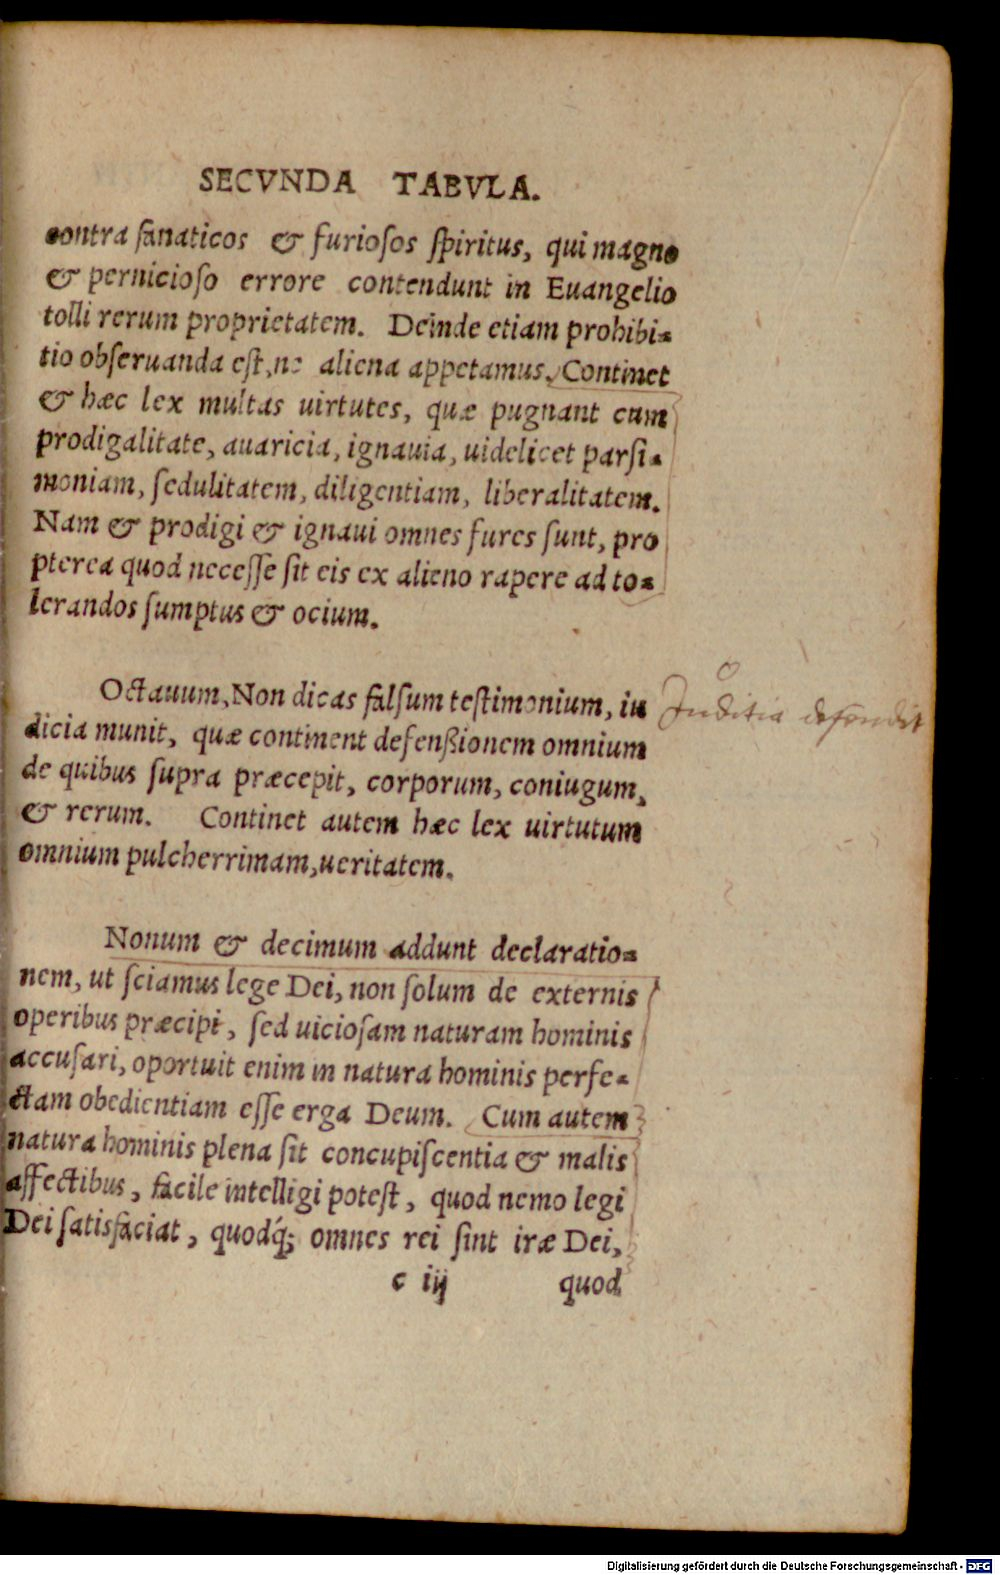 SECVNDA TABVLA.
contra fanaticos & furioſos ſpiritus, qui magno
& pernicioſo errore contendunt in Euangelio
tolli rerum proprietatem. Deinde etiam prohibi=
tio obſeruanda eſt, ne aliena appetamus. Continet
& hæc lex multas uirtutes, quæ pugnant cum
prodigalitate, auaricia, ignauia, uidelicet parſi=
moniam, ſedulitatem, diligentiam, liberalitatem.
Nam & prodigi & ignaui omnes fures ſunt, pro
pterea quod neceſſe ſit eis ex alieno rapere ad to=
lerandos ſumptus & ocium.
Octauum, Non dicas falſum teſtimonium, iu
dicia munit, quæ continent defenßionem omnium
de quibus ſupra præcepit, corporum, coniugum,
& rerum. Continet autem hæc lex uirtutum
omnium pulcherrimam, ueritatem.
Juditia defendit
Nonum & decimum addunt declaratio=
nem, ut ſciamus lege Dei, non ſolum de externis
operibus præcipi, ſed uicioſam naturam hominis
accuſari, oportuit enim in natura hominis perfe=
ctam obedientiam eſſe erga Deum. Cum autem
natura hominis plena ſit concupiſcentia & malis
affectibus, facile intelligi poteſt, quod nemo legi
Dei ſatisfaciat, quodq́; omnes rei ſint iræ Dei,
c iij quod
Digitalisierung gefördert durch die Deutsche Forschungsgemeinschaft - DFG